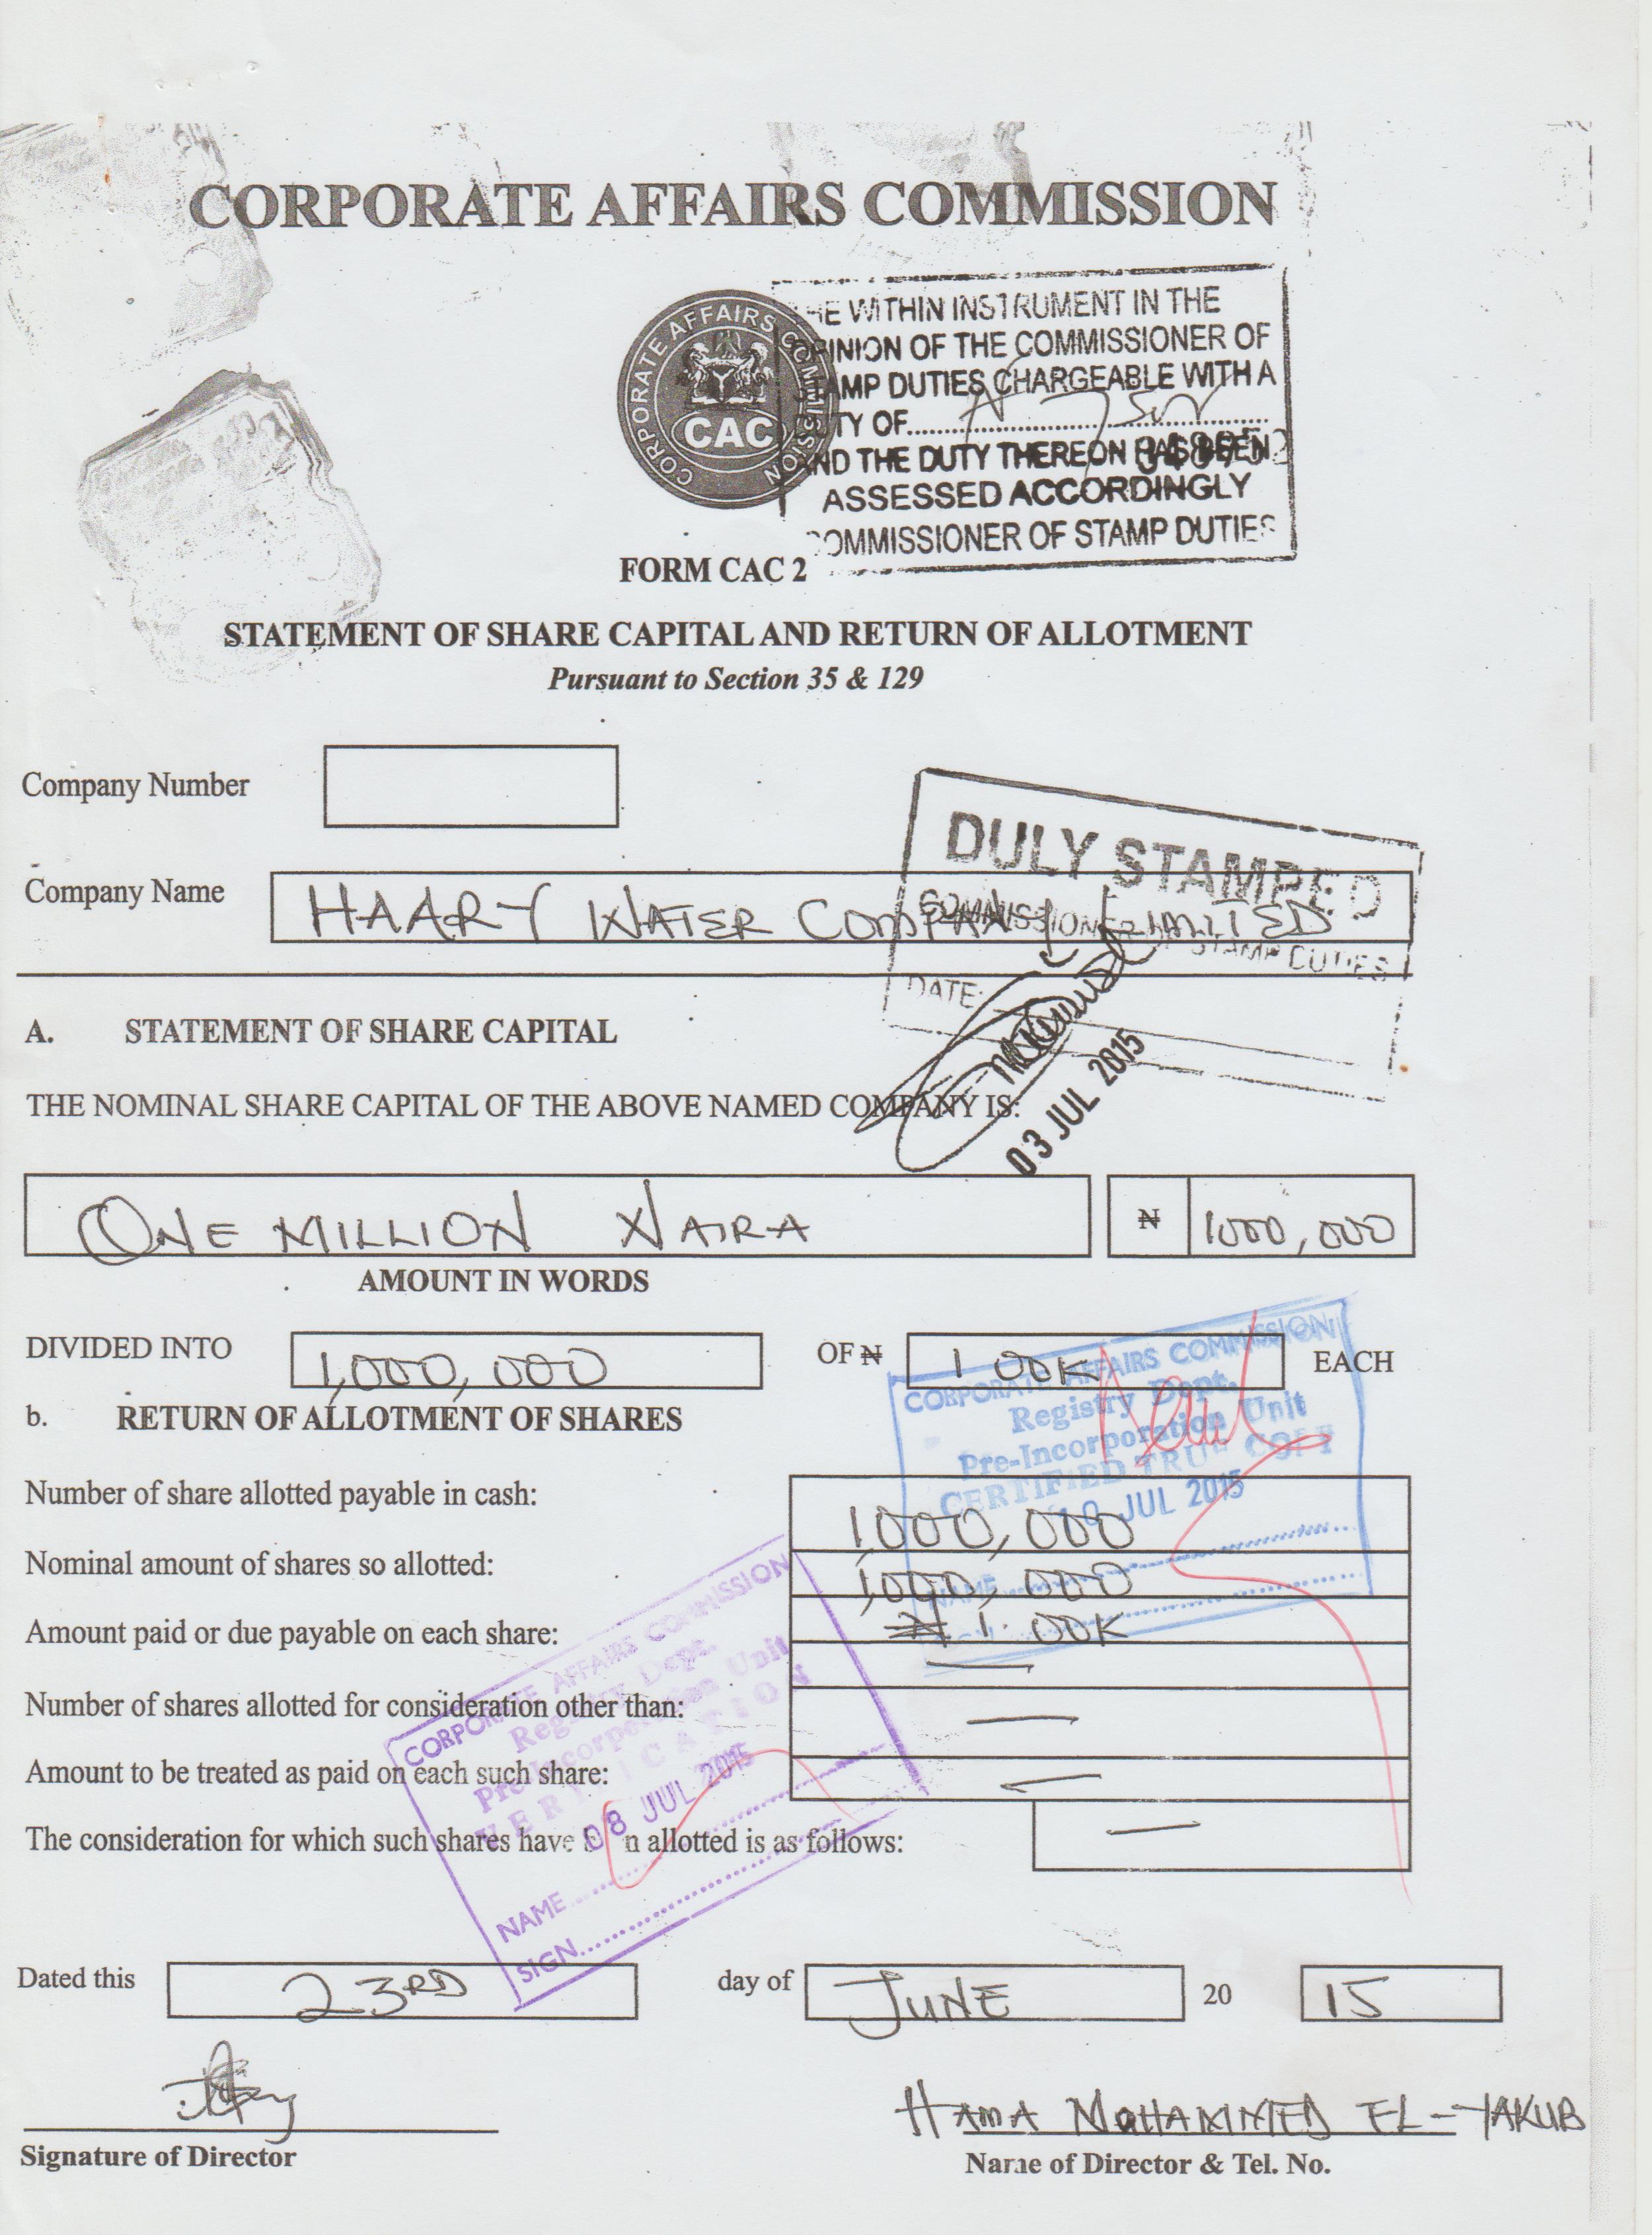 CORPORATE AFFAIRS COMMISSION
CORPORATE AFFAIRS COMMISSION
CAC
HE WITHIN INSTRUMENT IN THE
PINION OF THE COMMISSIONER OF
TAMP DUTIES CHARGEABLE WITH A
TY OF
AND THE DUTY THEREON HAS BEEN
ASSESSED ACCORDINGLY
COMMISSIONER OF STAMP DUTIES
FORM CAC 2
STATEMENT OF SHARE CAPITAL AND RETURN OF ALLOTMENT
Pursuant to Section 35 & 129
Company Number
DULY STAMPED
Company Name HAARY WATER COMPANY LIMITED
COMMISSIONER OF STAMP DUTIES
DATE:
03 JUL 2015
A. STATEMENT OF SHARE CAPITAL
THE NOMINAL SHARE CAPITAL OF THE ABOVE NAMED COMPANY IS:
ONE MILLION NAIRA ₦ 1000,000
AMOUNT IN WORDS
DIVIDED INTO 1,000,000 OF ₦ 1 00K EACH
CORPORATE AFFAIRS COMMISSION
Registry Dept.
Pre-Incorporation Unit
CERTIFIED TRUE COPY
10 JUL 2015
NAME
b. RETURN OF ALLOTMENT OF SHARES
Number of share allotted payable in cash: 1000,000
Nominal amount of shares so allotted: 1,000,000
Amount paid or due payable on each share: ₦ 1.00K
—
Number of shares allotted for consideration other than: —
Amount to be treated as paid on each such share: —
The consideration for which such shares have n allotted is as follows: —
CORPORATE AFFAIRS COMMISSION
Registry Dept.
Pre-Incorporation Unit
VERIFICATION
08 JUL 2015
NAME
SIGN
Dated this 23RD day of JUNE 20 15
HAMA MOHAMMED EL-YAKUB
Signature of Director Name of Director & Tel. No.